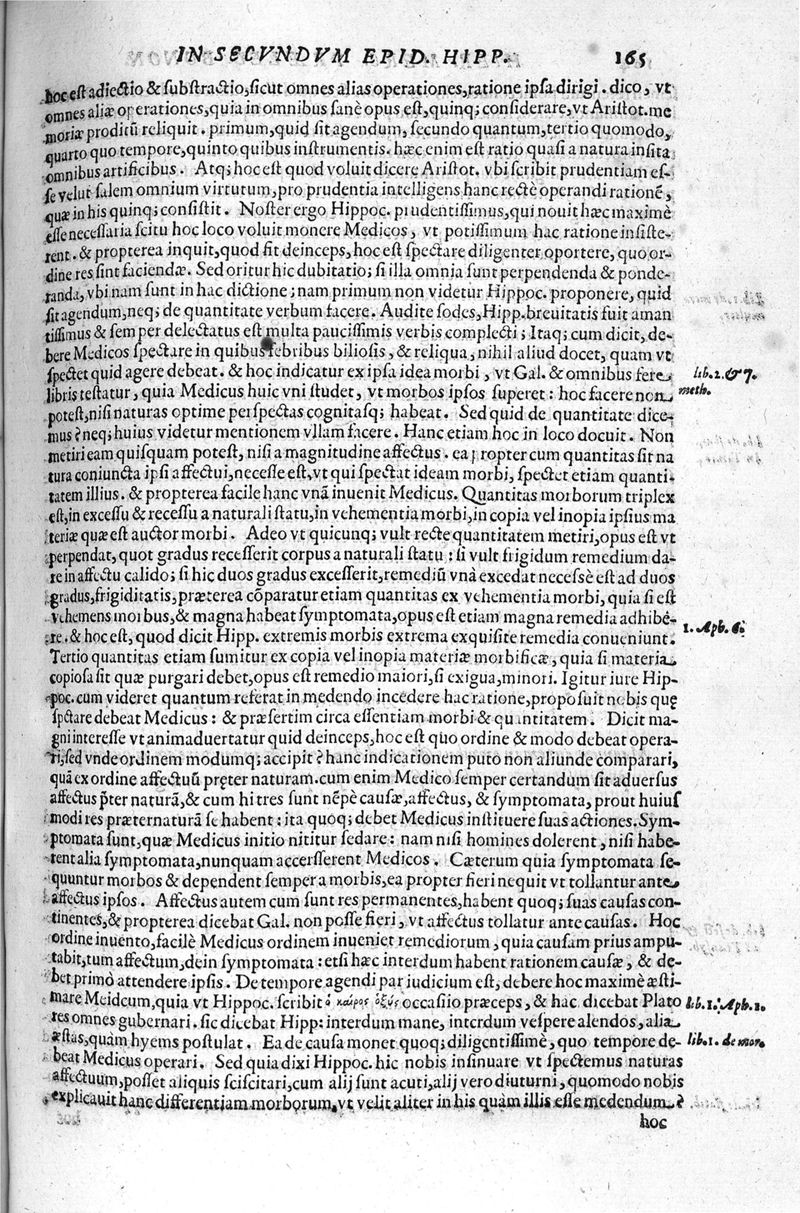 IN SECVNDVM EPID. HIPP. 165
hoc est adiectio & substractio, sicut omnes alias operationes, ratione ipsa dirigi. dico, vt
omnes aliæ operationes, quia in omnibus sanè opus est, quinq; considerare, vt Aristot. me
moriæ proditũ reliquit. primum, quid sit agendum, secundo quantum, tertio quomodo,
quarto quo tempore, quinto quibus instrumentis. hæc enim est ratio quasi a natura insita
omnibus artificibus. Atq; hoc est quod voluit dicere Aristot. vbi scribit prudentiam es-
se velut salem omnium virtutum, pro prudentia intelligens hanc rectè operandi rationẽ,
quæ in his quinq; consistit. Noster ergo Hippoc. prudentissimus, qui nouit hæc maximè
esse necessaria scitu hoc loco voluit monere Medicos, vt potissimum hac ratione insiste-
rent. & propterea inquit, quod sit deinceps, hoc est spectare diligenter oportere, quo or-
dine res sint faciendæ. Sed oritur hic dubitatio; si illa omnia sunt perpendenda & ponde-
randa, vbi nam sunt in hac dictione; nam primum non videtur Hippoc. proponere, quid
sit agendum, neq; de quantitate verbum facere. Audite sodes, Hipp. breuitatis fuit aman
tissimus & semper delectatus est multa paucissimis verbis complecti; Itaq; cum dicit, de-
bere Medicos spectare in quibus febribus biliosis, & reliqua, nihil aliud docet, quam vt
spectet quid agere debeat. & hoc indicatur ex ipsa idea morbi, vt Gal. & omnibus fere
lib. 2. & 7.
libris testatur, quia Medicus huic vni studet, vt morbos ipsos superet: hoc facere non
meth.
potest, nisi naturas optime perspectas cognitasq; habeat. Sed quid de quantitate dice-
mus? neq; huius videtur mentionem vllam facere. Hanc etiam hoc in loco docuit. Non
metiri eam quisquam potest, nisi a magnitudine affectus. ea propter cum quantitas sit na
tura coniuncta ipsi affectui, necesse est, vt qui spectat ideam morbi, spectet etiam quanti-
tatem illius. & propterea facile hanc vnã inuenit Medicus. Quantitas morborum triplex
est, in excessu & recessu a naturali statu, in vehementia morbi, in copia vel inopia ipsius ma
teriæ quæ est auctor morbi. Adeo vt quicunq; vult recte quantitatem metiri, opus est vt
perpendat, quot gradus recesserit corpus a naturali statu: si vult frigidum remedium da-
re in affectu calido; si hic duos gradus excesserit, remediũ vnà excedat necessè est ad duos
gradus, frigiditatis, præterea cõparatur etiam quantitas ex vehementia morbi, quia si est
vehemens morbus, & magna habeat symptomata, opus est etiam magna remedia adhibé-
re. & hoc est, quod dicit Hipp. extremis morbis extrema exquisite remedia conueniunt.
1. Aph. 6.
Tertio quantitas etiam sumitur ex copia vel inopia materiæ morbificæ, quia si materia
copiosa sit quæ purgari debet, opus est remedio maiori, si exigua, minori. Igitur iure Hip-
poc. cum videret quantum referat in medendo incedere hac ratione, proposuit nobis quę
spctare debeat Medicus: & præsertim circa essentiam morbi & quantitatem. Dicit ma-
gni interesse vt animaduertatur quid deinceps, hoc est quo ordine & modo debeat opera-
ri, sed vnde ordinem modumq; accipit? hanc indicationem puto non aliunde comparari,
quã ex ordine affectuũ pręter naturam. cum enim Medico semper certandum sit aduersus
affectus p̃ter naturã, & cum hi tres sunt nẽpè causæ, affectus, & symptomata, prout huius
modi res præternaturã se habent: ita quoq; debet Medicus instituere suas actiones. Sym-
ptomata sunt, quæ Medicus initio nititur sedare: nam nisi homines dolerent, nisi habe-
rent alia symptomata, nunquam accersserent Medicos. Cæterum quia symptomata se-
quuntur morbos & dependent semper a morbis, ea propter fieri nequit vt tollantur ante
affectus ipsos. Affectus autem cum sunt res permanentes, habent quoq; suas causas con-
tinentes, & propterea dicebat Gal. non posse fieri, vt affectus tollatur ante causas. Hoc
ordine inuento, facilè Medicus ordinem inueniet remediorum, quia causam prius ampu-
tabit, tum affectum, dein symptomata: etsi hæc interdum habent rationem causæ, & de-
bet primò attendere ipsis. De tempore agendi par iudicium est, debere hoc maximè æsti-
mare Meidcum, quia vt Hippoc. scribit ὁ καῖρος ὀξὺς occasiio præceps, & hac dicebat Plato
lib. 1. Aph. 1.
res omnes gubernari. sic dicebat Hipp: interdum mane, interdum vespere alendos, alia
æstas, quàm hyems postulat. Ea de causa monet quoq; diligentissimè, quo tempore de-
lib. 1. de mor.
beat Medicus operari. Sed quia dixi Hippoc. hic nobis insinuare vt spectemus naturas
affectuum, posset aliquis sciscitari, cum alij sunt acuti, alij vero diuturni, quomodo nobis
explicauit hanc differentiam morborum, vt velit aliter in his quàm illis esse medendum?
hoc